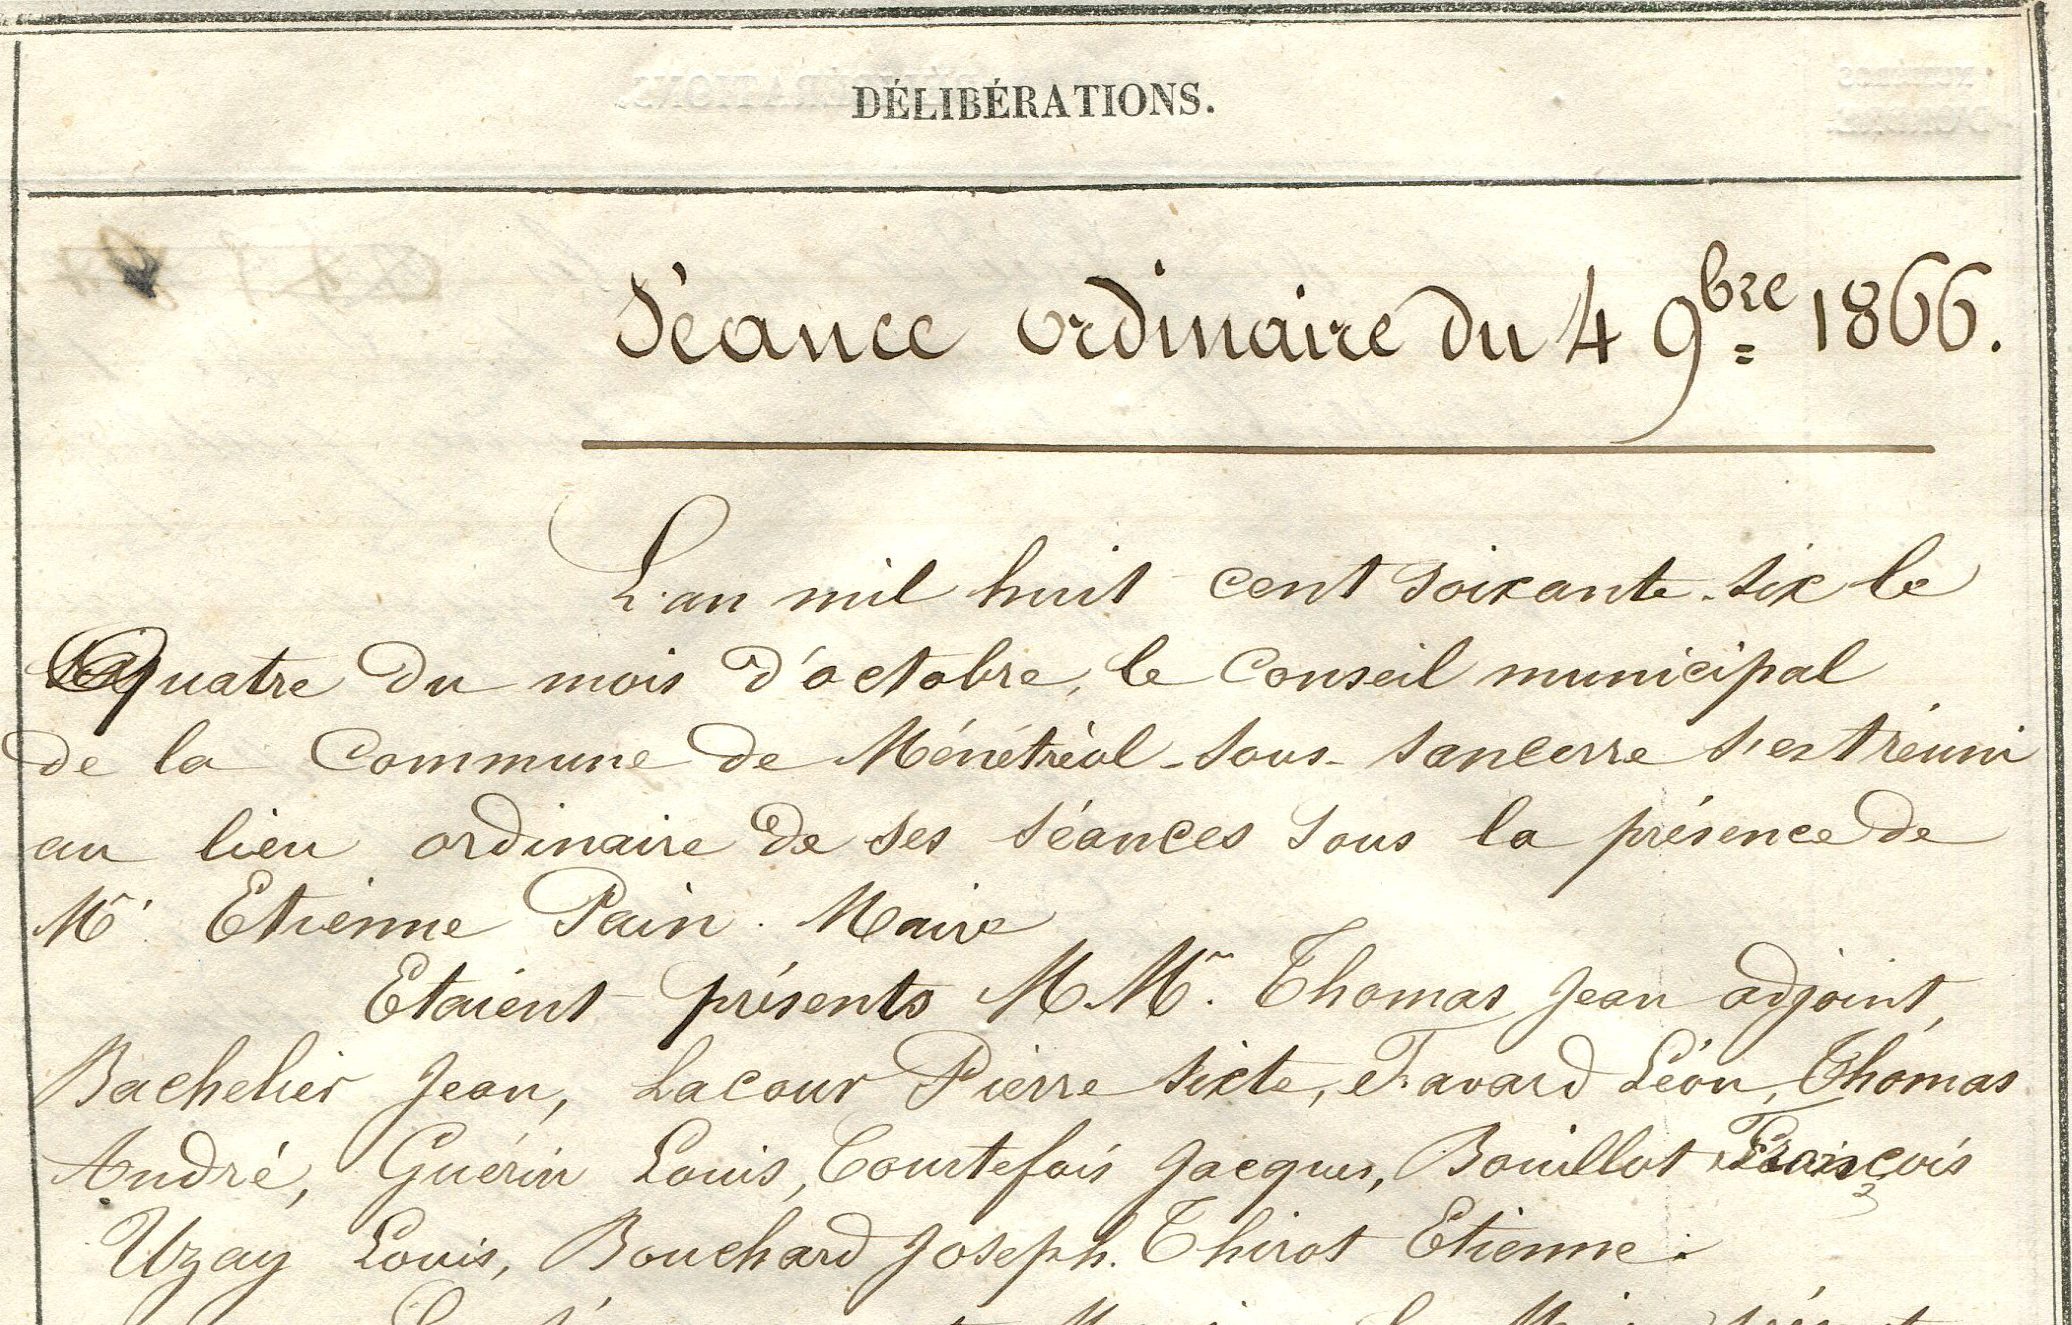 DÉLIBÉRATIONS.
Séance ordinaire du 4 9bre 1866.
L'an mil huit cent soixante-six le
quatre du mois d'octobre, le Conseil municipal
de la Commune de Ménétréol-sous-Sancerre s'est réuni
au lieu ordinaire de ses séances sous la présence de
Mr. Etienne Pain. Maire
Etaient présents M.Mr. Thomas Jean adjoint,
Bachelier Jean, Lacour Pierre Sixte, Favard Léon, Thomas
André, Guérin Louis, Courtefois Jacques, Bouillot François
Uzay Louis, Bouchard Joseph. Thirot Etienne.